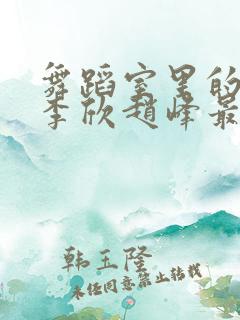 舞蹈室里的
李欣赵峰最
韩玉隆
未经同意禁止转载